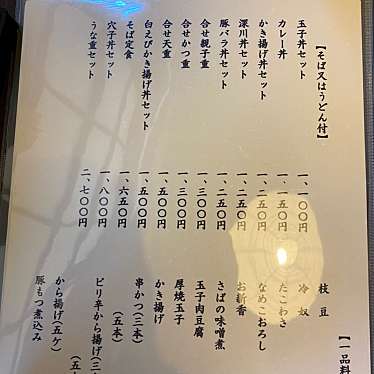 【そば又はうどん付】
玉子丼セット 一、一〇〇円
カレー丼 一、一五〇円
かき揚げ丼セット 一、二五〇円
深川丼セット 一、二五〇円
豚バラ丼セット 一、二五〇円
合せ親子重 一、三〇〇円
合せかつ重 一、三〇〇円
合せ天重 一、五〇〇円
白えびかき揚げ丼セット 一、五〇〇円
そば定食 一、六五〇円
穴子丼セット 一、八〇〇円
うな重セット 二、七〇〇円
【一品料
枝豆
冷奴
たこわさ
なめこおろし
お新香
さばの味噌煮
玉子肉豆腐
厚焼玉子
かき揚げ
串かつ(三本)
(五本)
ピリ辛から揚げ(三
(五
から揚げ(五ケ)
豚もつ煮込み